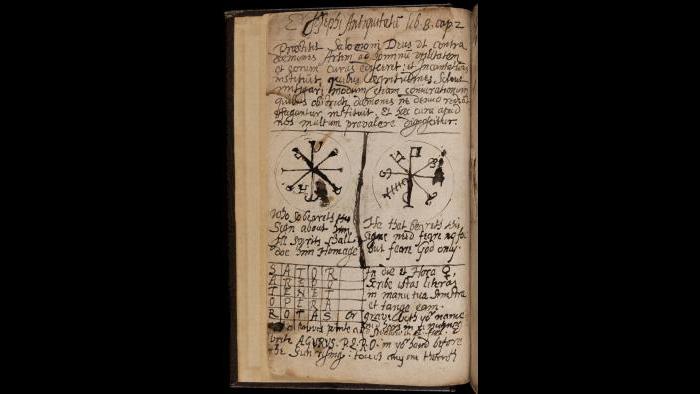 Ex Josephi Antiquitatū lib. 8. cap 2
Prestitit Salomoni Deus ut contra
demones Artem ad hominum utilitatem
et eorum curas edisceret: et Incantationes
instituit quibus Aegritudines Solent
mitigari modum etiam coniurationum
quibus obstricti demones ne denuo
effugantur instituit, Et hec cura apud
nos multum prevalere
Who so beareth this
Sign about him
All Spirits Shall
doe him Homage
He that beareth this
Signe need feare no foe
but feare God only.
S A T O R
A R E P O
T E N E T
O P E R A
R O T A S or
In die et Hora ♀
Scribe istas literas
in manu tua Sinistra
et tange eam.
yoʳ name
write AGURYS. P.E.R.O. in yoʳ hand before
the Sun rysing: touch any one therewᵗʰ